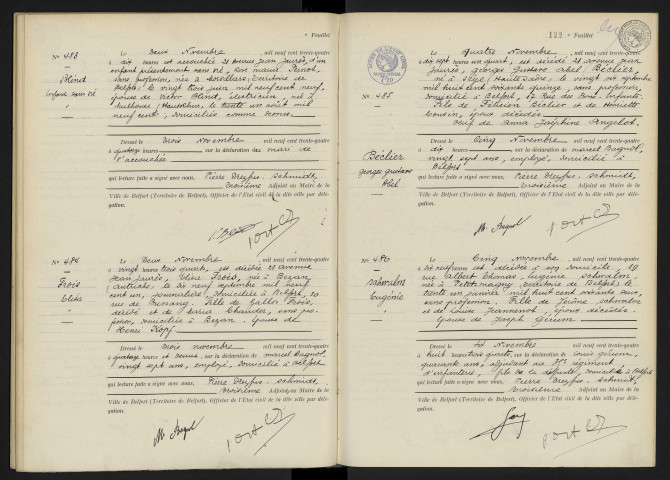 Feuillet
Nº 483
Blind
enfant sans vie
Le deux Novembre, mil neuf cent trente-quatre
est accouchée 21 avenue Jean Jaurès, d'un
enfant présentement sans vie,
sans profession, née à territoire de
Belfort, le vingt trois juin mil neuf cent neuf,
épouse de Victor Blind, électricien, né à
Mulhouse (Haut-Rhin), le trente un août mil
neuf cent, domiciliés comme
Dressé le trois Novembre, mil neuf cent trente-quatre
quatorze heures sur la déclaration du mari de
l'accouchée
qui lecture faite a signé avec nous, Pierre Dreyfus-Schmidt,
troisième Adjoint au Maire de la
Ville de Belfort (Territoire de Belfort), Officier de l'Etat civil de la dite ville par délé-
gation.
Nº 484
Frois
Elisa
Le Deux Novembre, mil neuf cent trente-quatre
à vingt heures trois quarts, est décédée 21 avenue
Jean Jaurès, Elisa Frois, née à Bezau
(Autriche) le dix neuf septembre mil neuf
cent un, journalière, domiciliée à Belfort, 20
rue de Fille de Frois,
décédé et de Maria sans pro-
fession, domiciliée à Bezau. Epouse de
Henri Kopf
Dressé le trois novembre, mil neuf cent trente-quatre
quatorze heures et demie, sur la déclaration de Marcel Bagnol,
vingt sept ans, employé, domicilié à Belfort
qui lecture faite a signé avec nous, Pierre Dreyfus-Schmidt,
troisième Adjoint au Maire de la
Ville de Belfort (Territoire de Belfort), Officier de l'Etat civil de la dite ville par délé-
gation.
M. Bagnol
122 Feuillet
Nº 485
Béclier
Georges Gustave
Abel
Le quatre Novembre, mil neuf cent trente-quatre
à dix sept heures un quart, est décédé 21 avenue Jean
Jaurès, Georges Gustave Abel Béclier,
né à (Haute-Saône), le vingt six septembre
mil huit cent soixante quinze, sans profession,
domicilié à Belfort, 17 Rue des
Fils de Béclier et de Henriette
Cousin, époux décédés
Veuf de Anna Joséphine Angelot.
Dressé le Cinq Novembre, mil neuf cent trente-quatre
dix heures sur la déclaration de Marcel Bagnol,
vingt sept ans, employé, domicilié à
Belfort
qui lecture faite a signé avec nous, Pierre Dreyfus-Schmidt,
troisième Adjoint au Maire de la
Ville de Belfort (Territoire de Belfort), Officier de l'Etat civil de la dite ville par délé-
gation.
M. Bagnol
Nº 486
Schwalm
Eugénie
Le Cinq Novembre, mil neuf cent trente-quatre
à dix neuf heures est décédée à son domicile, 19
rue Albert Thomas, Eugénie Schwalm,
née à Petitmagny (territoire de Belfort) le
trente un janvier mil huit cent soixante six,
sans profession. Fille de Jérôme Schwalm
et de Louise Jeannenot, époux décédés.
Epouse de Joseph Gérum.
Dressé le six Novembre, mil neuf cent trente-quatre
huit heures trois quarts, sur la déclaration de Louis Gérum,
quarante ans, adjudant au régiment
d'infanterie, fils de la défunte, domicilié à Belfort
qui lecture faite a signé avec nous, Pierre Dreyfus-Schmidt,
troisième Adjoint au Maire de la
Ville de Belfort (Territoire de Belfort), Officier de l'Etat civil de la dite ville par délé-
gation.